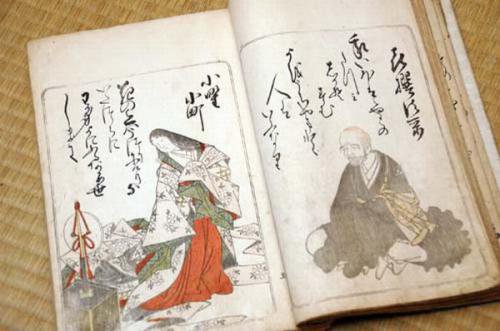 喜撰法師
我いほはみやこの
たつみ
しかそすむ
よをうち山と
人は
いふなり
小野
小町
花の色はうつりにけりな
いたつらに
わか身よにふるなかめせ
しまに